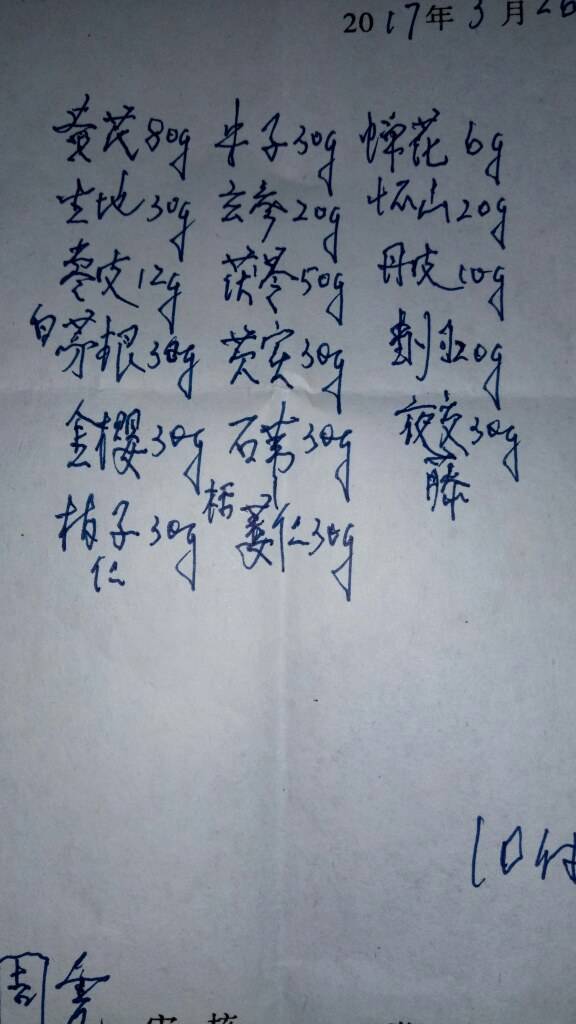 2017年3月26
黄芪80g 牛子30g 蝉花6g
生地30g 玄参20g 怀山20g
枣皮12g 茯苓50g 丹皮10g
白茅根30g 芡实30g 20g
金樱30g 石苇30g 夜交藤30g
柏子仁30g 栝蒌仁30g
10付
周
审核